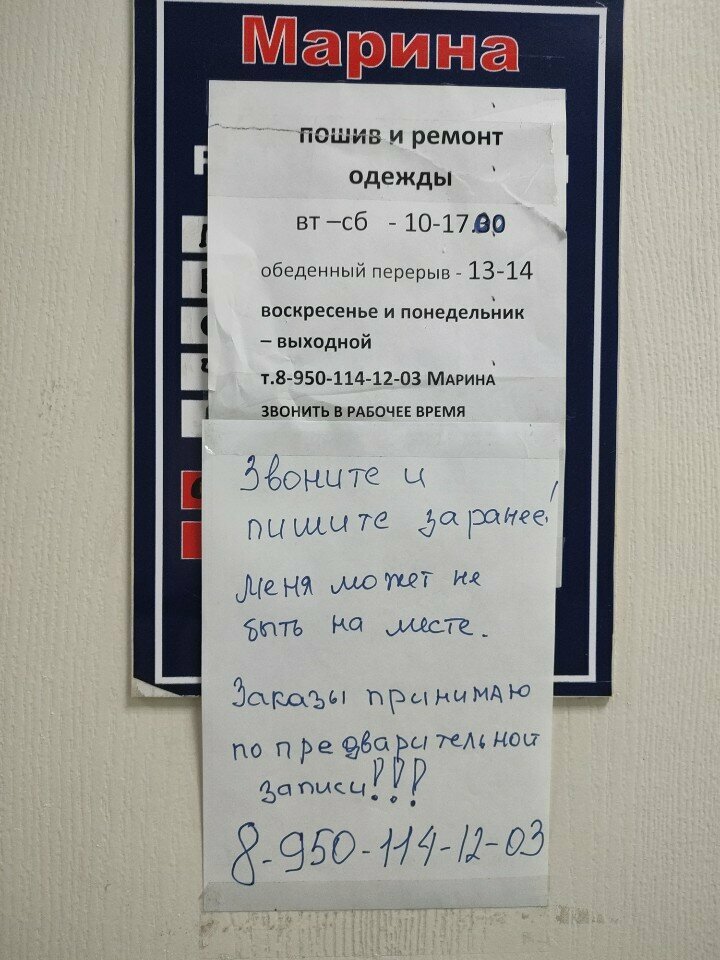 Марина
пошив и ремонт
одежды
вт –сб - 10-17.00
обеденный перерыв - 13-14
воскресенье и понедельник
– выходной
т.8-950-114-12-03 Марина
звонить в рабочее время
Звоните и
пишите заранее!
Меня может не
быть на месте.
Заказы принимаю
по предварительной
записи!!!
8-950-114-12-03